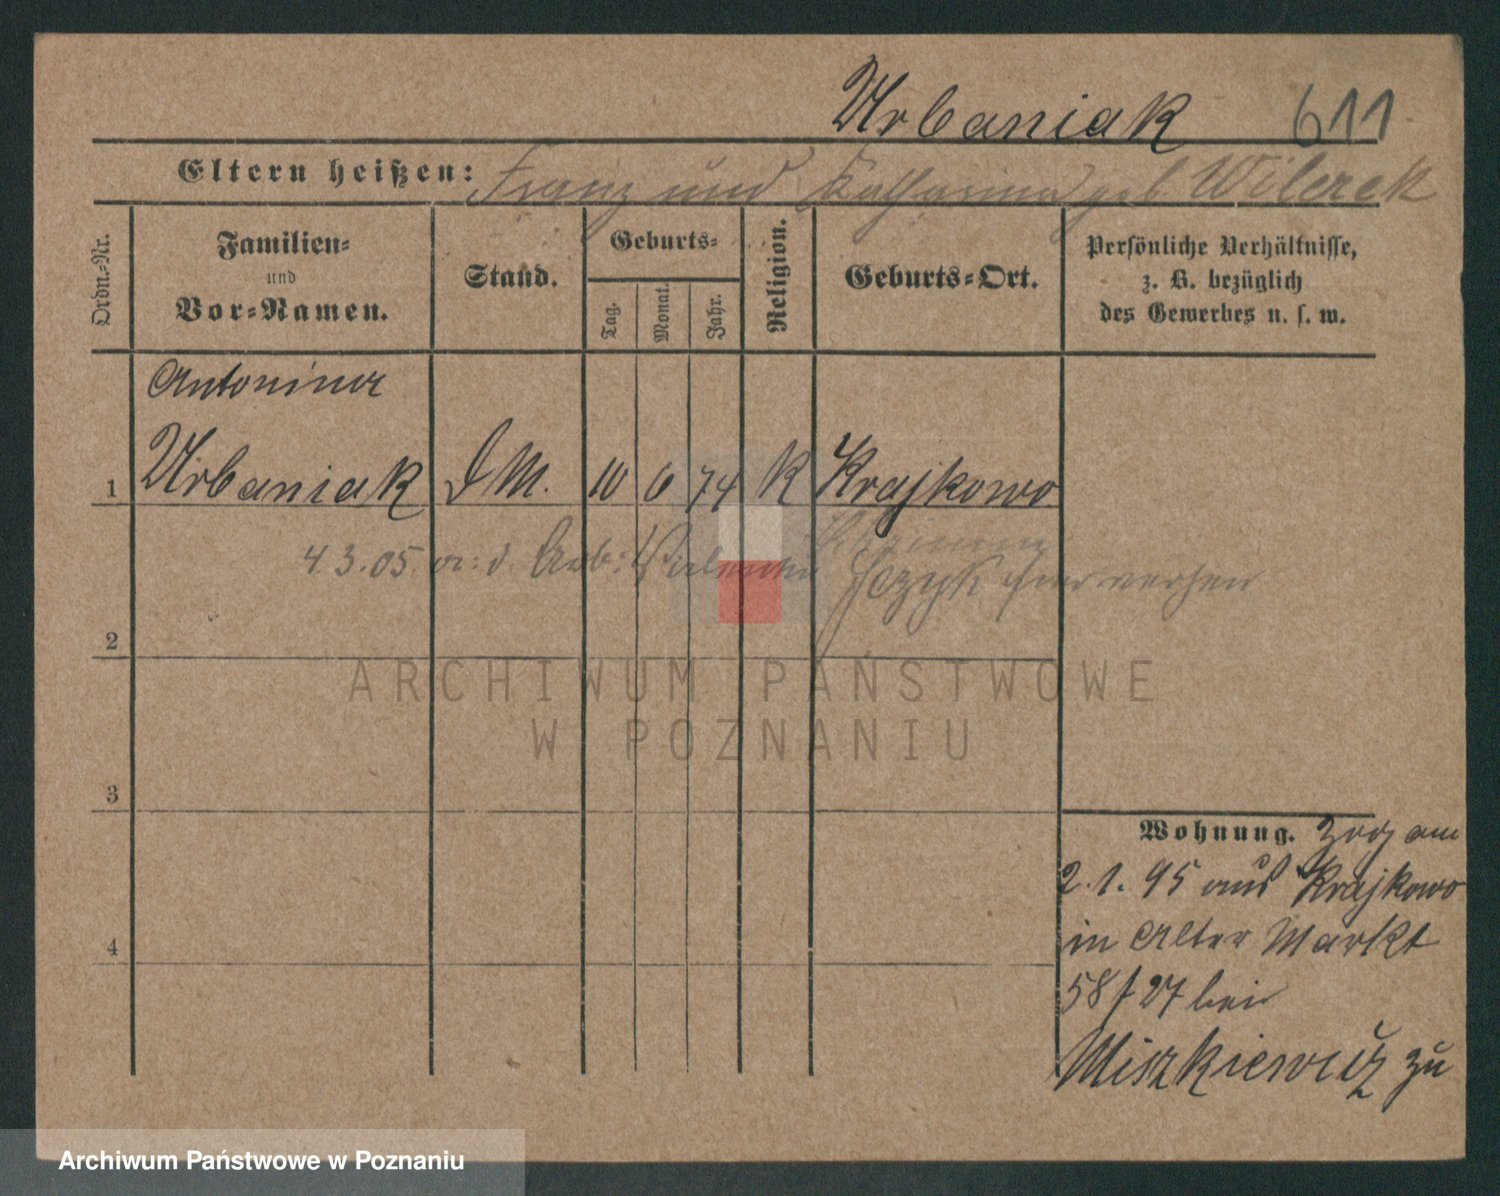 Urbaniak 611
Eltern heißen: Franz und Katharina geb
Ordn.=Nr.
Familien=
und
Vor=Namen.
Stand.
Geburts=
Tag.
Monat.
Jahr.
Religion.
Geburts=Ort.
Persönliche Verhältnisse,
z. B. bezüglich
des Gewerbes u. s. w.
Antonina
1 Urbaniak DM. 10 6 74 K Krajkowo
4.3.05
2
3
4
Wohnung. Zog am
2.1.95 aus Krajkowo
in Alter Markt
58/27 bei
Miszkiewicz zu
ARCHIWUM PAŃSTWOWE
W POZNANIU
Archiwum Państwowe w Poznaniu